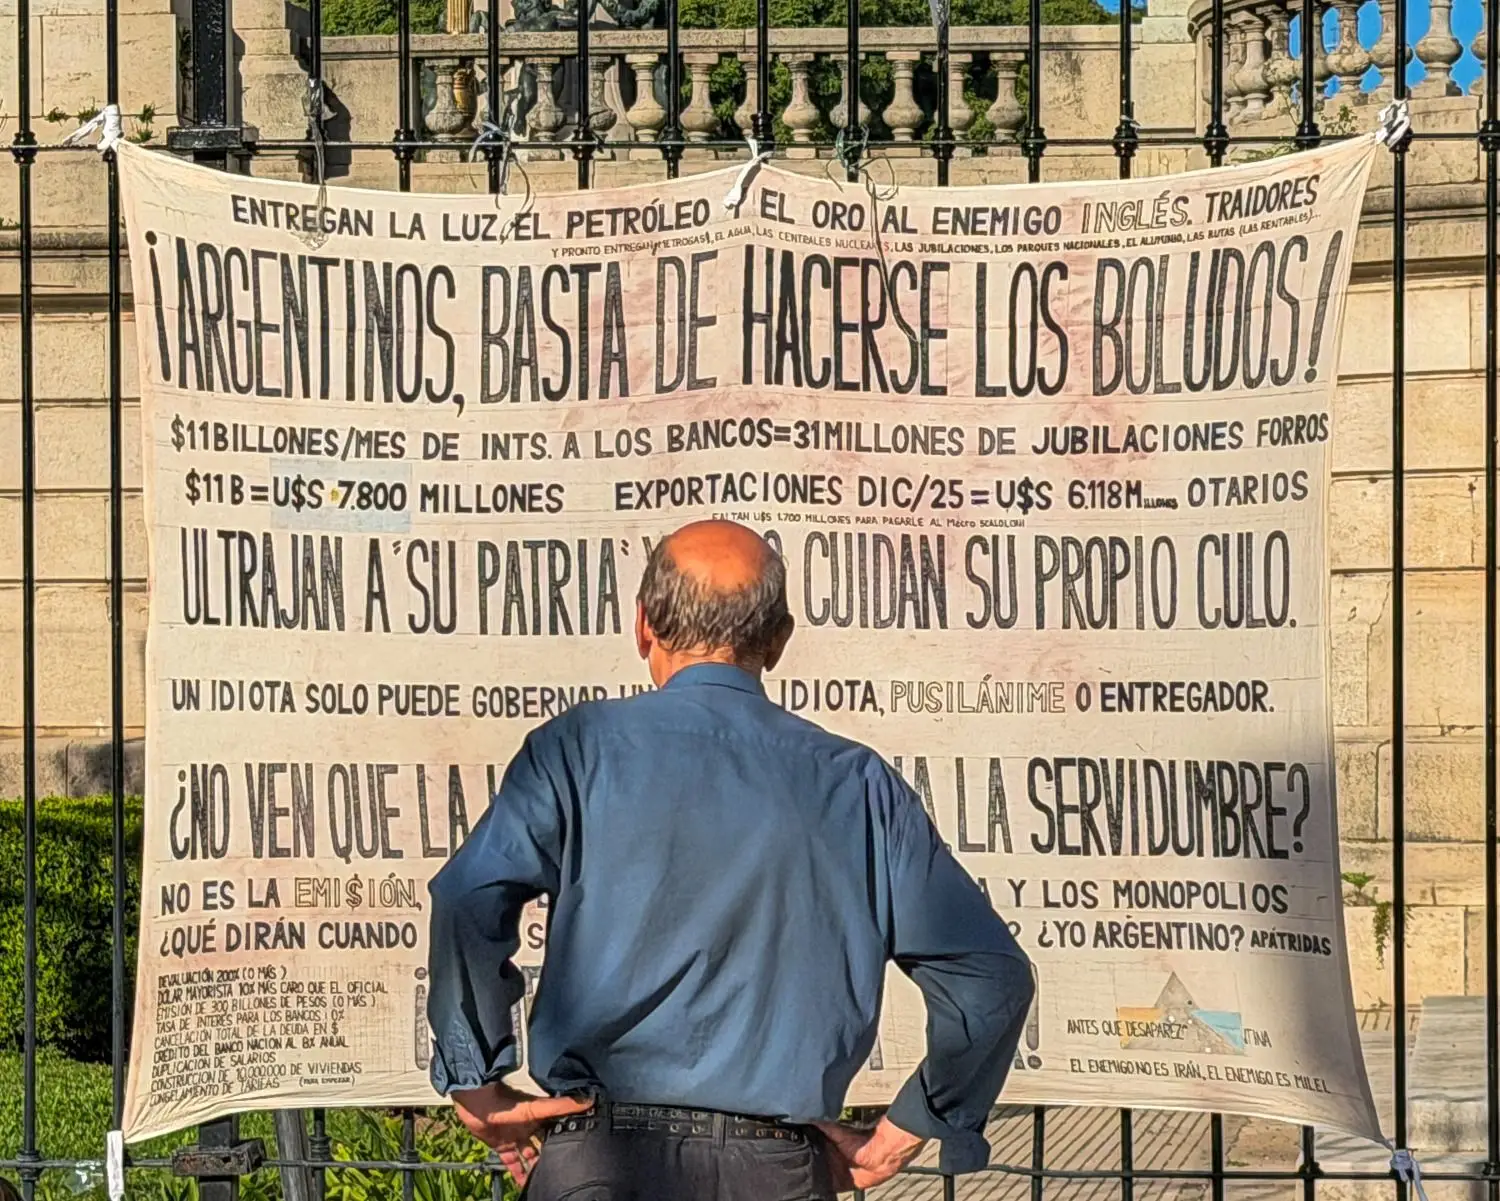 ENTREGAN LA LUZ, EL PETRÓLEO Y EL ORO AL ENEMIGO INGLÉS. TRAIDORES
Y PRONTO ENTREGAN, EL AGUA, LAS CENTRALES NUCLEARES, LAS JUBILACIONES, LOS PARQUES NACIONALES, EL ALUMINIO, LAS RUTAS (LAS RENTABLES)...
¡ARGENTINOS, BASTA DE HACERSE LOS BOLUDOS!
$11BILLONES/MES DE INTS. A LOS BANCOS=31MILLONES DE JUBILACIONES FORROS
$11B=U$S 7.800 MILLONES EXPORTACIONES DIC/25=U$S 6.118MILLONES OTARIOS
FALTAN U$S 1.700 MILLONES PARA PAGARLE AL Messi SCALOLONI
ULTRAJAN A "SU PATRIA" Y CUIDAN SU PROPIO CULO.
UN IDIOTA SOLO PUEDE GOBERNAR IDIOTA, PUSILÁNIME O ENTREGADOR.
¿NO VEN QUE LA LA SERVIDUMBRE?
NO ES LA EMI$IÓN, Y LOS MONOPOLIOS
¿QUÉ DIRÁN CUANDO ? ¿YO ARGENTINO? APÁTRIDAS
DEVALUACIÓN 200% (O MÁS)
DÓLAR MAYORISTA 10% MÁS CARO QUE EL OFICIAL
EMISIÓN DE 300 BILLONES DE PESOS (O MÁS)
TASA DE INTERÉS PARA LOS BANCOS: 0%
CANCELACIÓN TOTAL DE LA DEUDA EN $
CRÉDITO DEL BANCO NACION AL 8% ANUAL
DUPLICACION DE SALARIOS
CONSTRUCCION DE 10.000.000 DE VIVIENDAS
CONGELAMIENTO DE TARIFAS (PARA EMPEZAR)
ANTES QUE DESAPAREZCA
EL ENEMIGO NO ES IRÁN, EL ENEMIGO ES MILEI.